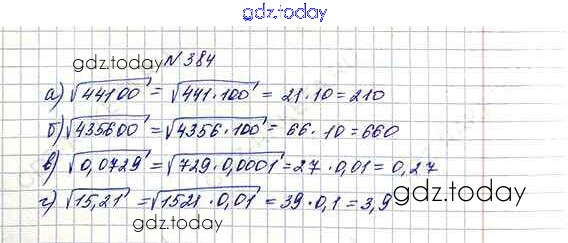 gdz.today
gdz.today
N 384
а) √44100 = √441·100 = 21·10 = 210
б) √435600 = √4356·100 = 66·10 = 660
в) √0,0729 = √729·0,0001 = 27·0,01 = 0,27
г) √15,21 = √1521·0,01 = 39·0,1 = 3,9
gdz.today
gdz.today